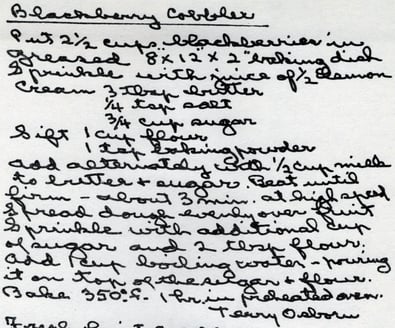 Blackberry Cobbler
Put 2½ cups blackberries in
greased 8 x 12 x 2" baking dish
Sprinkle with juice of ½ lemon
Cream 3 tbsp butter
¼ tsp salt
¾ cup sugar
Sift 1 cup flour
1 tsp baking powder
Add alternately with ½ cup milk
to butter + sugar. Beat until
firm - about 3 min. at high speed
Spread dough evenly over fruit
Sprinkle with additional cup
of sugar and 2 tbsp flour.
Add 1 cup boiling water - pouring
it on top of the sugar + flour.
Bake 350° 1 hr. in preheated oven.
Terry Osborn
Fresh